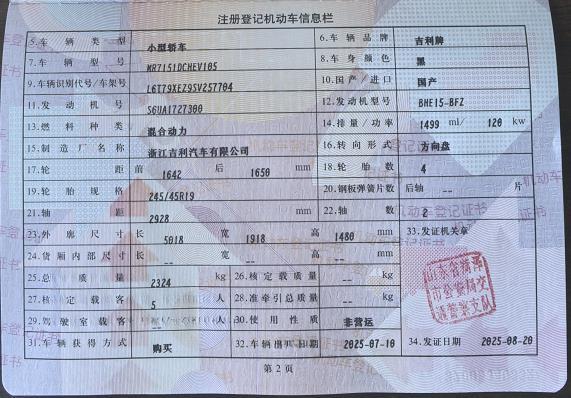 注册登记机动车信息栏
5.车辆类型 小型轿车 6.车辆品牌 吉利牌
7.车辆型号 MR7151DCHEV105 8.车身颜色 黑
9.车辆识别代号/车架号 L6T79XEZ9SV257704 10.国产/进口 国产
11.发动机号 S6UA1727300 12.发动机型号 BHE15-BFZ
13.燃料种类 混合动力 14.排量/功率 1499 ml/ 120 kw
15.制造厂名称 浙江吉利汽车有限公司 16.转向形式 方向盘
17.轮距 前 1642 后 1650 mm 18.轮胎数 4
19.轮胎规格 245/45R19 20.钢板弹簧片数 后轴 -- 片
21.轴距 2928 mm 22.轴数 2
23.外廓尺寸 长 5018 宽 1918 高 1480 mm 33.发证机关章
24.货厢内部尺寸 长 -- 宽 -- 高 -- mm
25.总质量 2324 kg 26.核定载质量 -- kg
27.核定载客 5 人 28.准牵引总质量 -- kg
29.驾驶室载客 -- 人 30.使用性质 非营运
31.车辆获得方式 购买 32.车辆出厂日期 2025-07-10 34.发证日期 2025-08-20
山东省菏泽
市公安局交
通警察支队
第2页